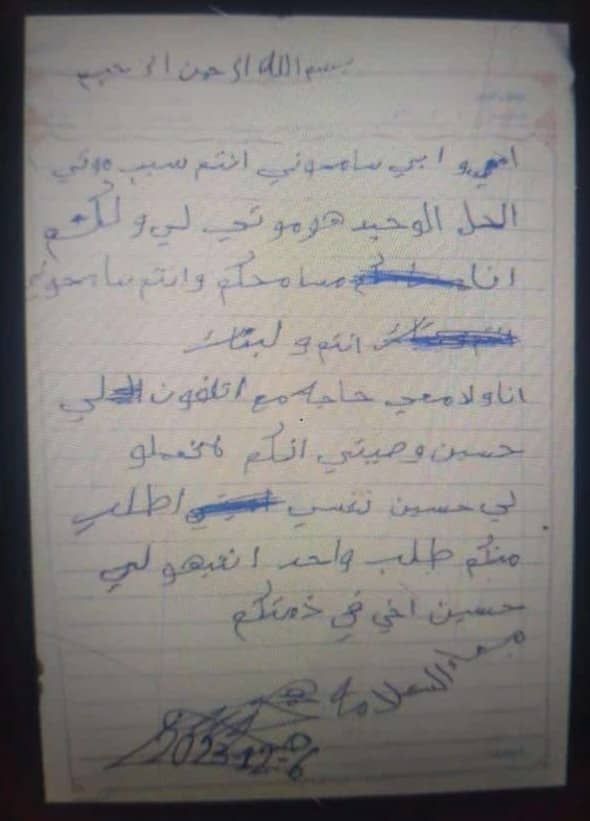 بسم الله الرحمن الرحيم
امي و ابي سامحوني انتم سبب موتي
الحل الوحيد هو موتي لي ولكم
انا مسامحكم وانتم سامحوني
انتم و لبنات
انا ولا معي حاجه مع اتلفون لي
حسين وصيتي انكم
لي حسين نفسي اطلب
منكم طلب واحد انتبهو لي
حسين اخي في ذمتكم
مع السلامه
2023-12-6